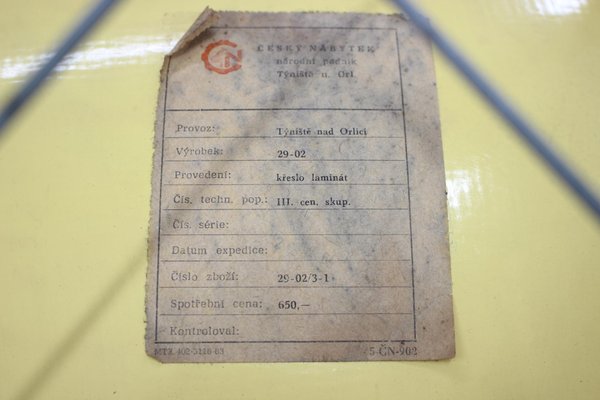 ČESKÝ NÁBYTEK
národní podnik
Týniště n. Orl.
Provoz: Týniště nad Orlicí
Výrobek: 29-02
Provedení: křeslo laminát
Čís. techn. pop.: III. cen. skup.
Čís. série:
Datum expedice:
Číslo zboží: 29-02/3-1
Spotřební cena: 650,—
Kontroloval:
MTZ 402-5116-63 5-ČN-902